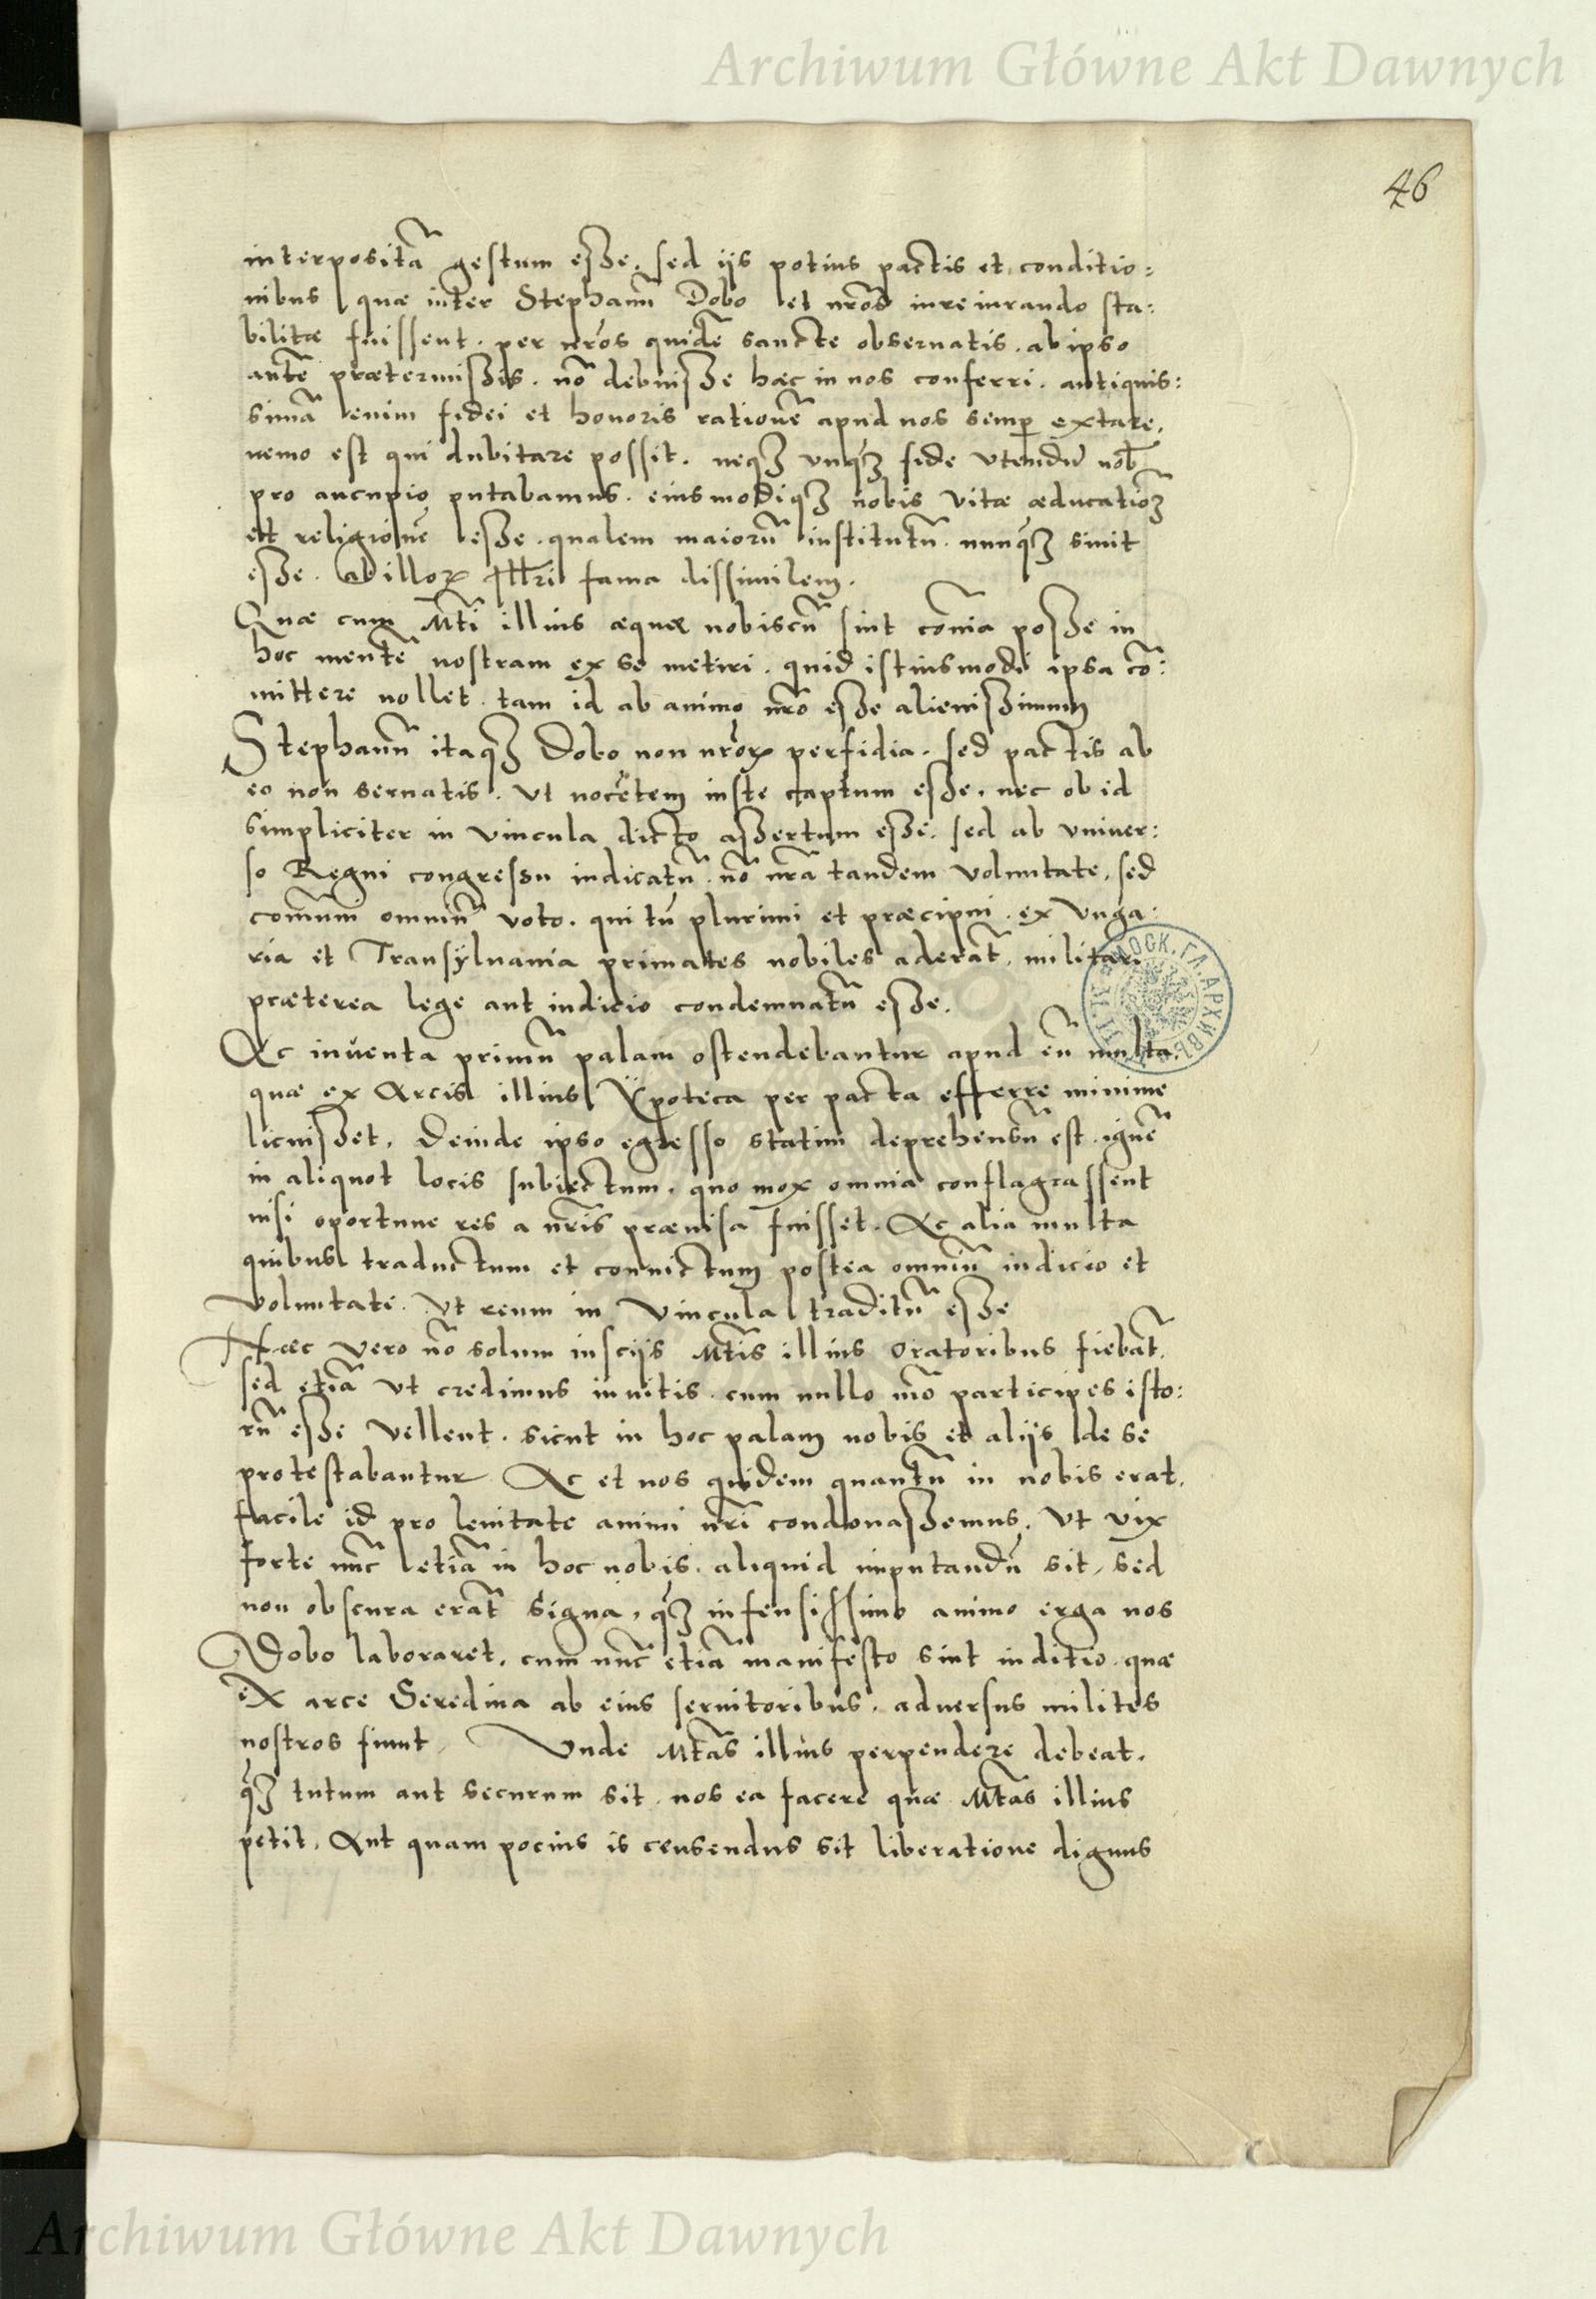 Archiwum Główne Akt Dawnych
46
interpositā gestum esse. sed ijs potius pactis et conditio:
nibus quæ inter Stephanū Dobo et nr̄os iureiurando sta:
bilitæ fuissent. per nr̄os quidē sancte obseruatis. ab ipso
autē prætermissis. nō debuisse hæc in nos conferri. antiquis:
simā enim fidei et honoris rationē apud nos semp̲ extare,
nemo est qui dubitare possit. neqȝ vnqȝ fide vtendū nob̄
pro aucupio putabamus. eiusmodiqȝ nobis vitæ æducatioȝ
et religionē esse. qualem maiorū institutū. nunqȝ sinit
esse. ab illoꝝ Ill̄ri fama dissimilem.
Quæ cum Mt̄i illius æque nobiscū sint cōnia posse in
hoc mentē nostram ex se metiri. quid istiusmodi ipsa cō:
mittere nollet. tam id ab animo nr̄o esse alienissimum
Stephanū itaqȝ Dobo non nr̄oꝝ perfidia. sed pactis ab
eo non seruatis. vt nocētem iuste captum esse. nec ob id
simpliciter in vincula dicto assertum esse. sed ab vniuer:
so Regni congressu iudicatū. nō nr̄a tandem voluntate. sed
com̄uni omniū voto. qui tū plurimi et præcipui. ex Vnga:
ria et Transÿluania primates nobiles aderāt. militari
præterea lege aut iudicio condemnatū esse.
МОСК. ГЛ. АРХИВЪ
Ac inuenta primū palam ostendebantur apud eū multa.
quæ ex Arcis illius Ÿpoteca per pacta efferre minime
licuisset. Deinde ipso egresso statim deprehensū est. ignē
in aliquot locis subiectum. quo mox omnia conflagrassent
nisi oportune res a nr̄is præuisa fuisset. Ac alia multa
quibus traductum et conuictum postea omniū iudicio et
voluntate. vt reum in vincula traditū esse
Hæc vero nō solum insciis Mt̄is illius Oratoribus fiebāt.
sed etiā vt credimus inuitis. cum nullo mō participes isto:
rū esse vellent. sicut in hoc palam nobis et alijs de se
protestabantur. Ac et nos quidem quantū in nobis erat.
facile id pro lenitate animi nr̄i condonassemus. vt vix
forte nūc etiā in hoc nobis. aliquid imputandū sit, sed
non obscura erāt signa, qȝ infensissimo animo erga nos
Dobo laboraret. cum nūc etiā manifesto sint inditio. quæ
ex arce Seredina ab eius seruitoribus. aduersus milites
nostros fiunt. Vnde Mt̄as illius perpendere debeat.
qȝ tutum aut securum sit. nos ea facere quæ Mt̄as illius
petit. Aut quam pocius is censendus sit liberatione dignus
Archiwum Główne Akt Dawnych